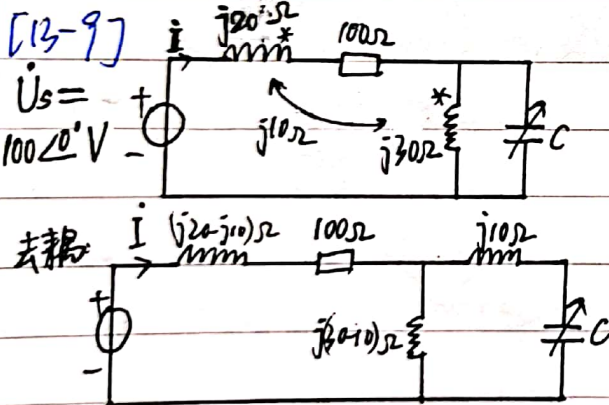 [13-9]
İ
j20Ω
*
100Ω
U̇s=
100∠0°V
+
-
j10Ω
*
j30Ω
C
去耦
İ
(j20-j10)Ω
100Ω
j10Ω
+
-
j(30-10)Ω
C